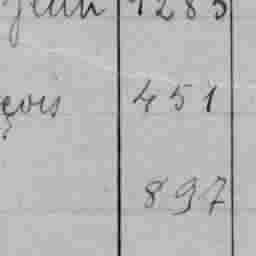 Jean 1285
çois 451
897